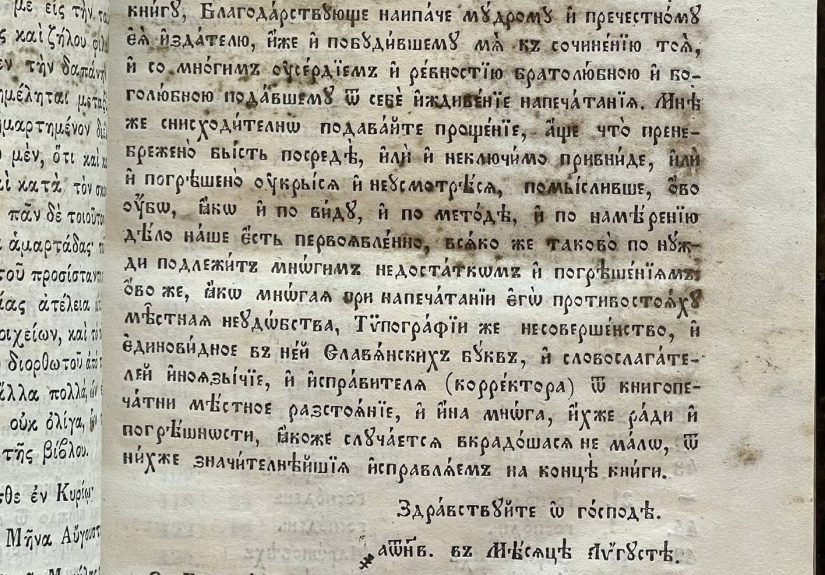 με εἰς τὴν
καὶ ζήλου
τὴν
μὲν, ὅτι καὶ
κατὰ τὸν
πᾶν δὲ
ἁμαρτάδας·
τοῦ
ἀτέλεια
καὶ
διορθωτοῦ ἀπὸ
πολλά, ὧν
οὐκ ὀλίγα, ὧν
τῆς βίβλου.
ἐν Κυρίῳ·
Μῆνα
кни́гу, Благода́рствующе наипа́че мꙋ́дромꙋ и҆ пречестно́мꙋ
е҆ѧ̀ и҆зда́телю, и҆́же и҆ побꙋди́вшемꙋ мѧ̀ къ сочине́нїю тоѧ̀,
и҆ со мно́гимъ ᲂу҆се́рдїемъ и҆ ре́вностїю братолю́бною и҆ бо-
голю́бною пода́вшемꙋ ѿ себѐ и҆ждиве́нїе напеча́танїѧ. Мнѣ́
же снисходи́телнѡ подава́йте проще́нїе, а҆́ще что̀ прене-
бреженò бы́сть посредѣ̀, и҆лѝ и҆ неключи́мо привни́де, и҆лѝ
и҆ погрѣшенò ᲂу҆кры́сѧ и҆ неусмотрѣ́сѧ, помы́сливше, ѻ҆́во
ᲂу҆́бѡ, ꙗ҆́кѡ и҆ по ви́дꙋ, и҆ по мето́дѣ, и҆ по намѣ́ренїю
дѣ́ло на́ше є҆́сть первоѧвле́нно, всѧ́ко же таково̀ по нꙋ́ж-
ди подлежи́тъ мнѡ́гимъ недоста́ткѡмъ и҆ погрѣше́нїѧмъ:
ѻ҆́во же, ꙗ҆́кѡ мнѡ́гаѧ при напеча́танїи є҆гѡ̀ противостоѧ́хꙋ
мѣ́стнаѧ неꙋдѡ́бства, Тѷпогра́фїи же несоверше́нство, и҆
є҆динови́дное въ не́й Славѧ́нскихъ бꙋ́квъ, и҆ словослага́те-
лей и҆ноѧзы́чїе, и҆ и҆спра́вителѧ (корре́ктора) ѿ книгопе-
ча́тни мѣ́стное разстоѧ́нїе, и҆ и҆́на мнѡ́га, и҆́хже ра́ди и҆
погрѣ́шнѡсти, ꙗ҆́коже слꙋча́етсѧ вкрадо́шасѧ не ма́лѡ, ѿ
ни́хже значи́телнѣйшїѧ и҆справлѧ́емъ на концѣ̀ кни́ги.
Здра́вствꙋйте ѡ҆ го́сподѣ.
въ Мѣ́сѧцѣ Аѵ҆́гꙋстѣ.